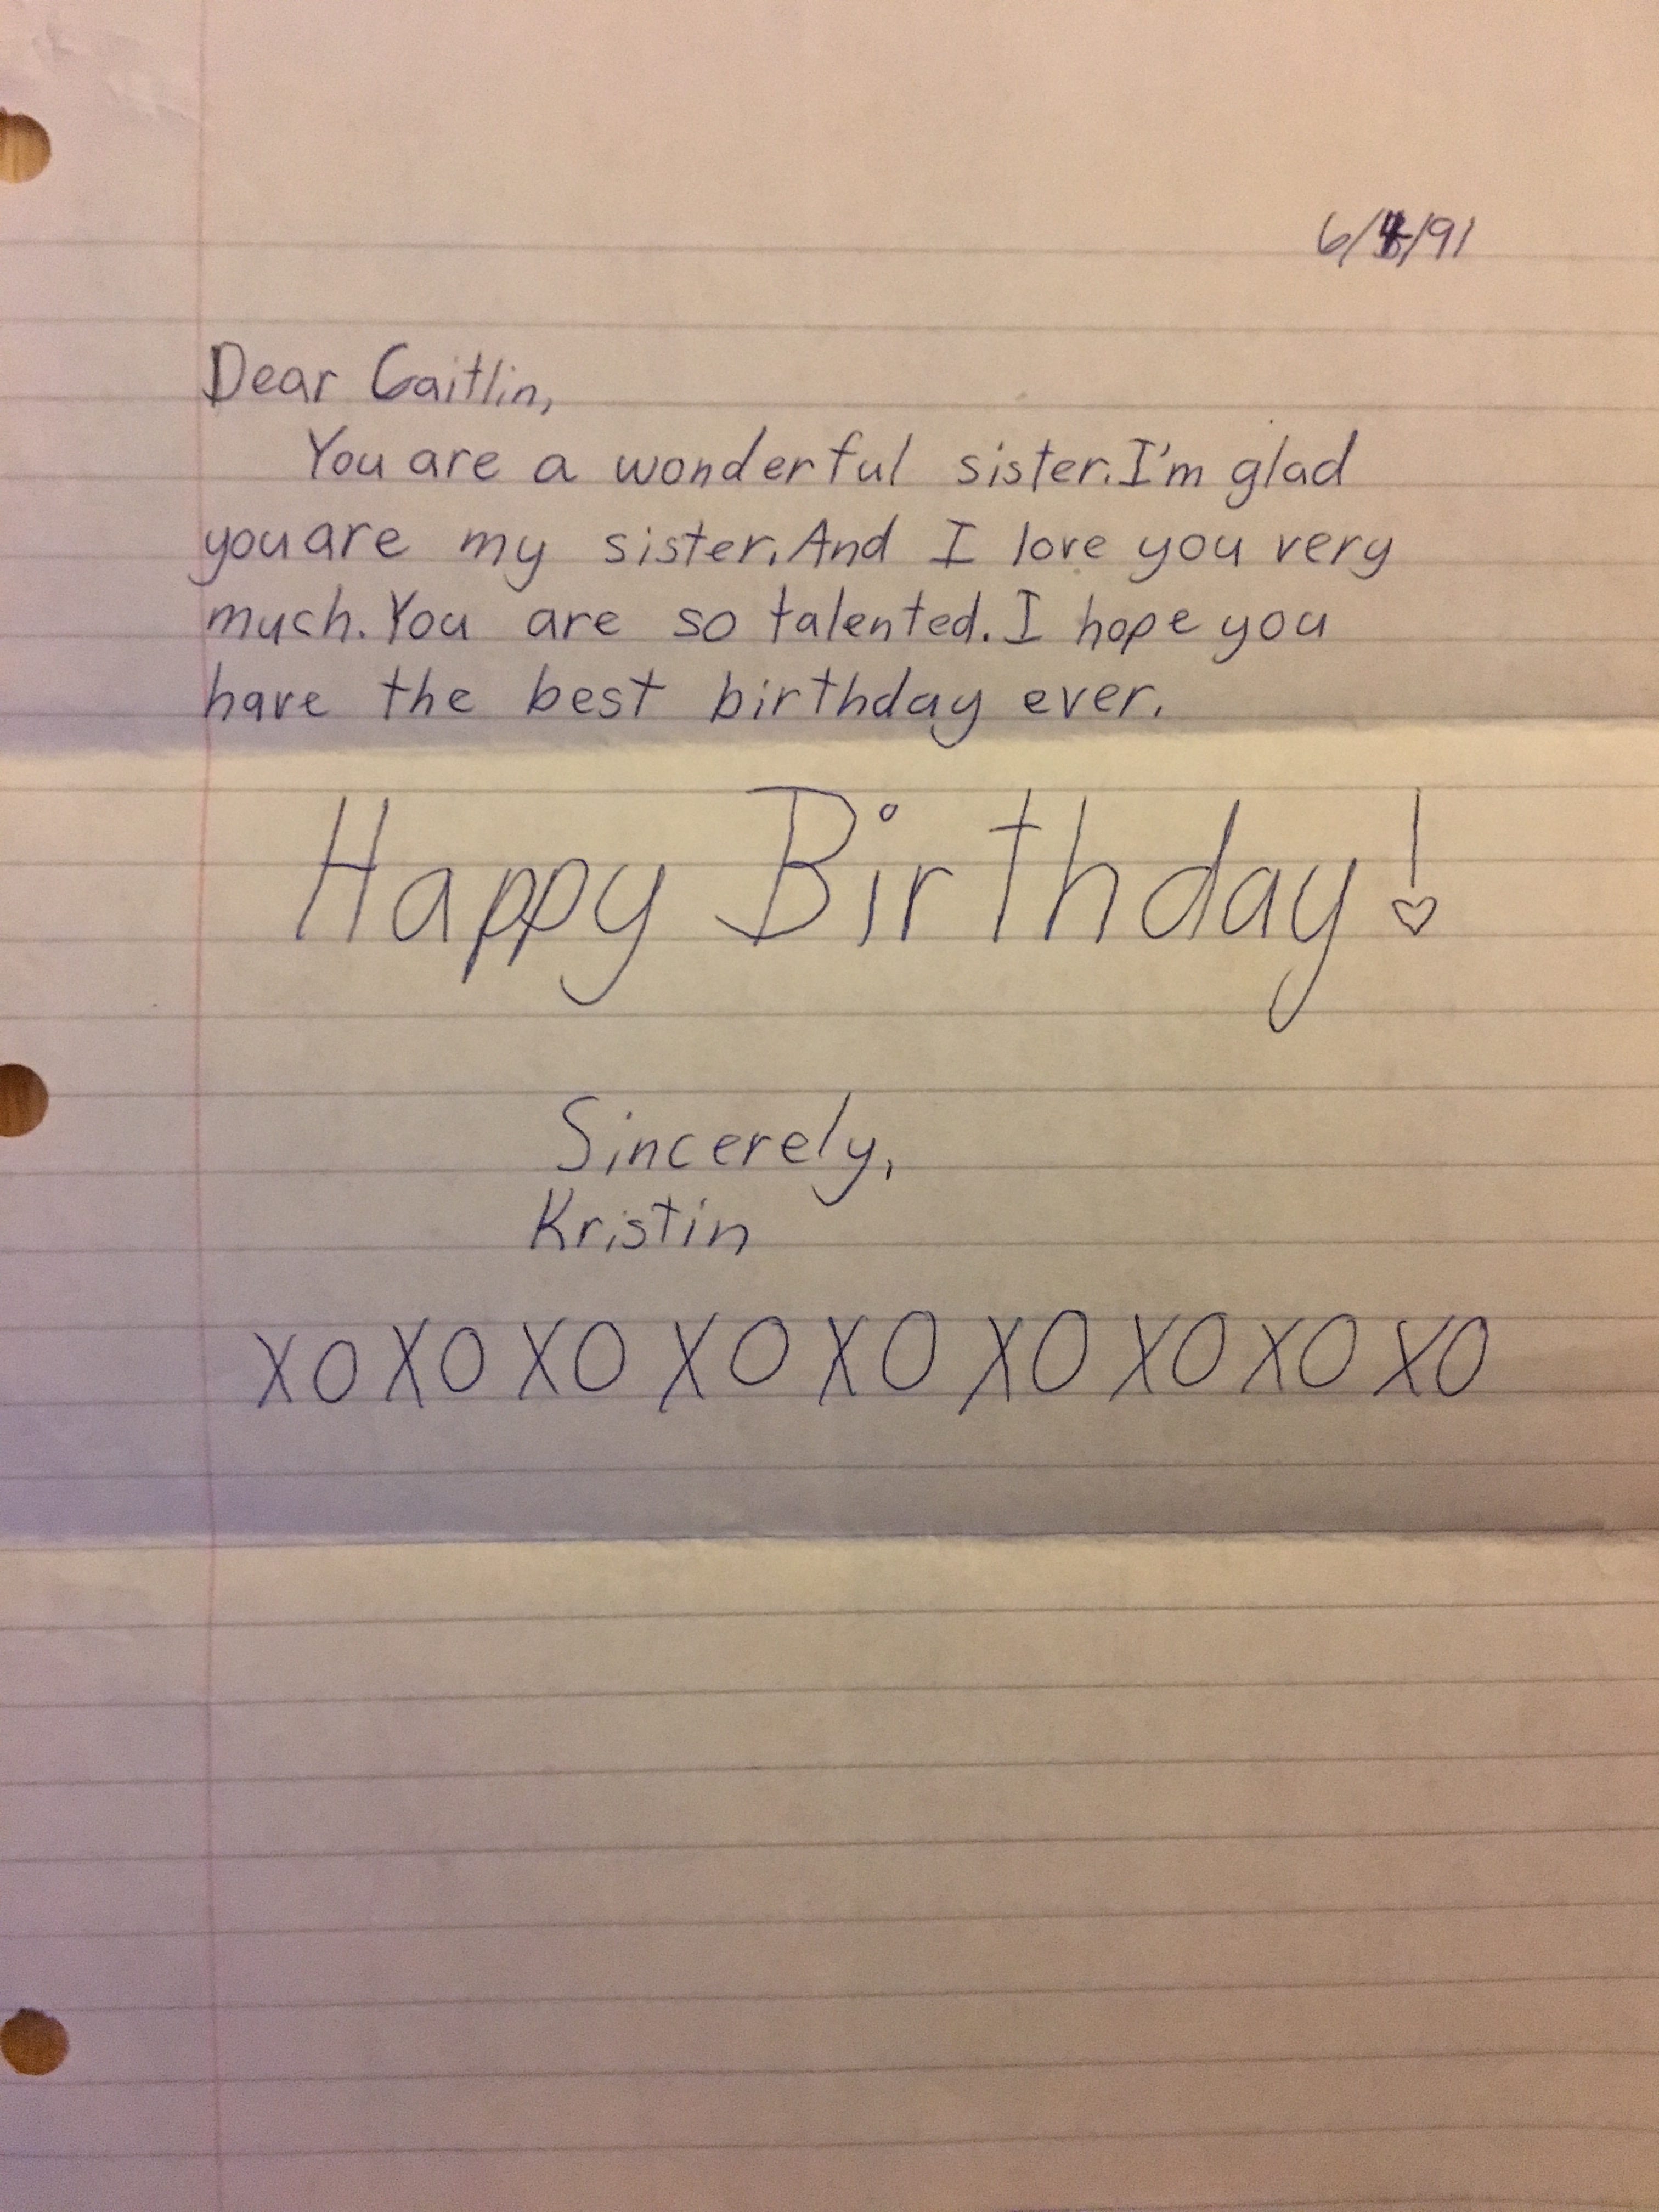 6/4/91
Dear Caitlin,
You are a wonderful sister. I'm glad
you are my sister. And I love you very
much. You are so talented. I hope you
have the best birthday ever.
Happy Birthday!
Sincerely,
Kristin
XO XO XO XO XO XO XO XO XO